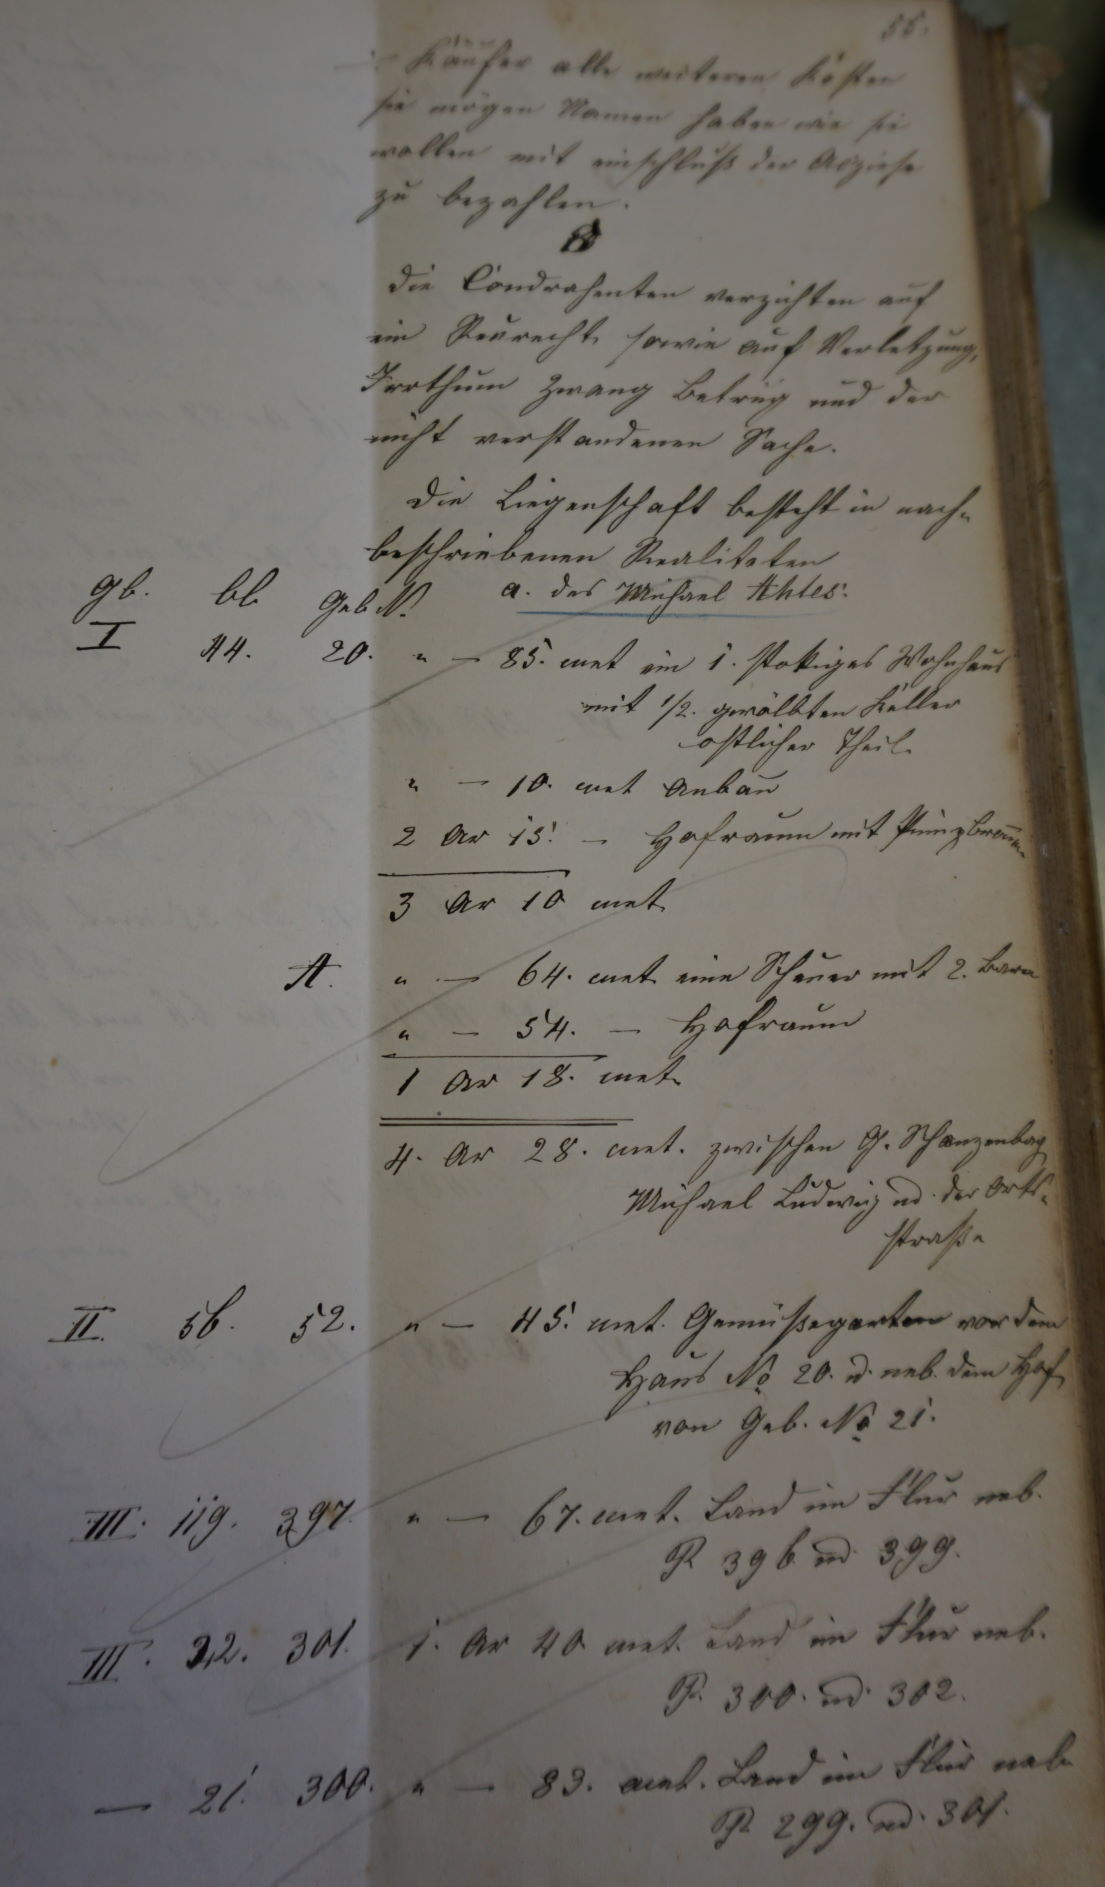 55.
Käufer alle weiteren Kosten
sie mögen Namen haben wie sie
wollen mit einschluß der Acziese
zu bezahlen.
8
die Condrahenten verzichten auf
ein Reurecht sowie auf Verletzung,
Irrthum Zwang Betrug und der
nicht verstandenen Sache.
Die Liegenschaft besteht in nach-
beschriebenen Realitaten
a. des Michael Ahles:
gb. bl. Geb N.
I 44. 20. " — 85. met ein 1. stokiges Wohnhaus
mit 1/2. gewölbten Keller
ostlicher Theil.
" — 10. met Anbau
2 Ar 15. — Hofraum mit
3 Ar 10 met.
A. " — 64. met eine Scheuer mit 2. Barn
" — 54. — Hofraum
1 Ar 18. met.
4. Ar 28. met. zwischen G. Schanzenbach
Michael Ludwig ud. der Orts-
straße
II. 56. 52. " — 45. met. Gemüßegarten vor dem
Haus No 20. u. neb. dem Hof
von Geb. No 21.
III. 119. 397. " — 67. met. Land im Flur neb.
P. 396 ud 399.
III. 22. 301. 1. Ar 40 met. Land im Flur neb.
P. 300. ud. 302.
— 21. 300. " — 83. met. Land im Flur neb.
P. 299. ud. 301.